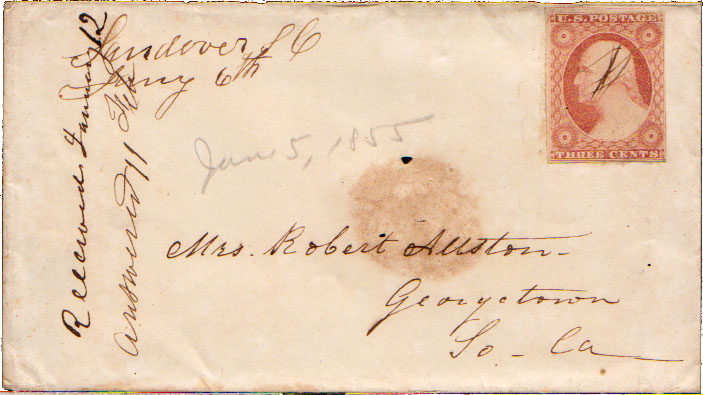 Landover S C
Jany 6th
Received January 12
Answered 11 Feb
U.S. POSTAGE
THREE CENTS
Jan 5, 1855
Mrs. Robert Allston
Georgetown
So - Ca